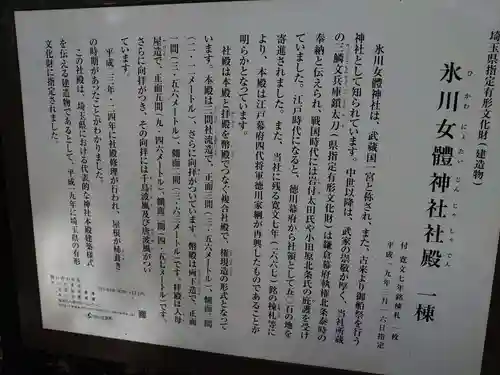 埼玉県指定有形文化財(建造物)
ひかわにょたいじんじゃしゃでん
氷川女體神社社殿 一棟
付 寛文七年銘棟札 一枚
氷川女體神社は、武蔵国一宮と称され、また、古来より御船祭を行う
神社として知られています。中世以降は、武家の崇敬が厚く、当社所蔵
の三鱗文兵庫鎖太刀(県指定有形文化財)は鎌倉幕府執権北条泰時の
奉納と伝えられ、戦国時代には岩付太田氏や小田原北条氏の庇護を受け
ていました。江戸時代になると、徳川幕府から社領として五〇石の地を
寄進されました。また、当社に残る寛文七年(一六六七)銘の棟札等に
より、本殿は江戸幕府四代将軍徳川家綱が再興したものであることが
明らかとなっています。
社殿は本殿と拝殿を幣殿でつなぐ複合社殿で、権現造の形式となって
います。本殿は三間社流造で、正面三間(三・五六メートル)、側面二間
(二・一二メートル)、さらに向拝がついています。幣殿は両下造で、正面
一間(三・五六メートル)、側面二間(三・六三メートル)です。拝殿は入母
屋造で、正面五間(九・四六メートル)、側面二間(四・五メートル)です。
さらに向拝がつき、その向拝には千鳥破風及び唐破風がつい
ています。
平成二三年・二四年に社殿修理が行われ、屋根が柿葺き
の時期があったことがわかりました。
この社殿は、埼玉県における代表的な神社本殿建築様式
を伝える建造物であるとして、平成一九年に埼玉県の有形
文化財に指定されました。